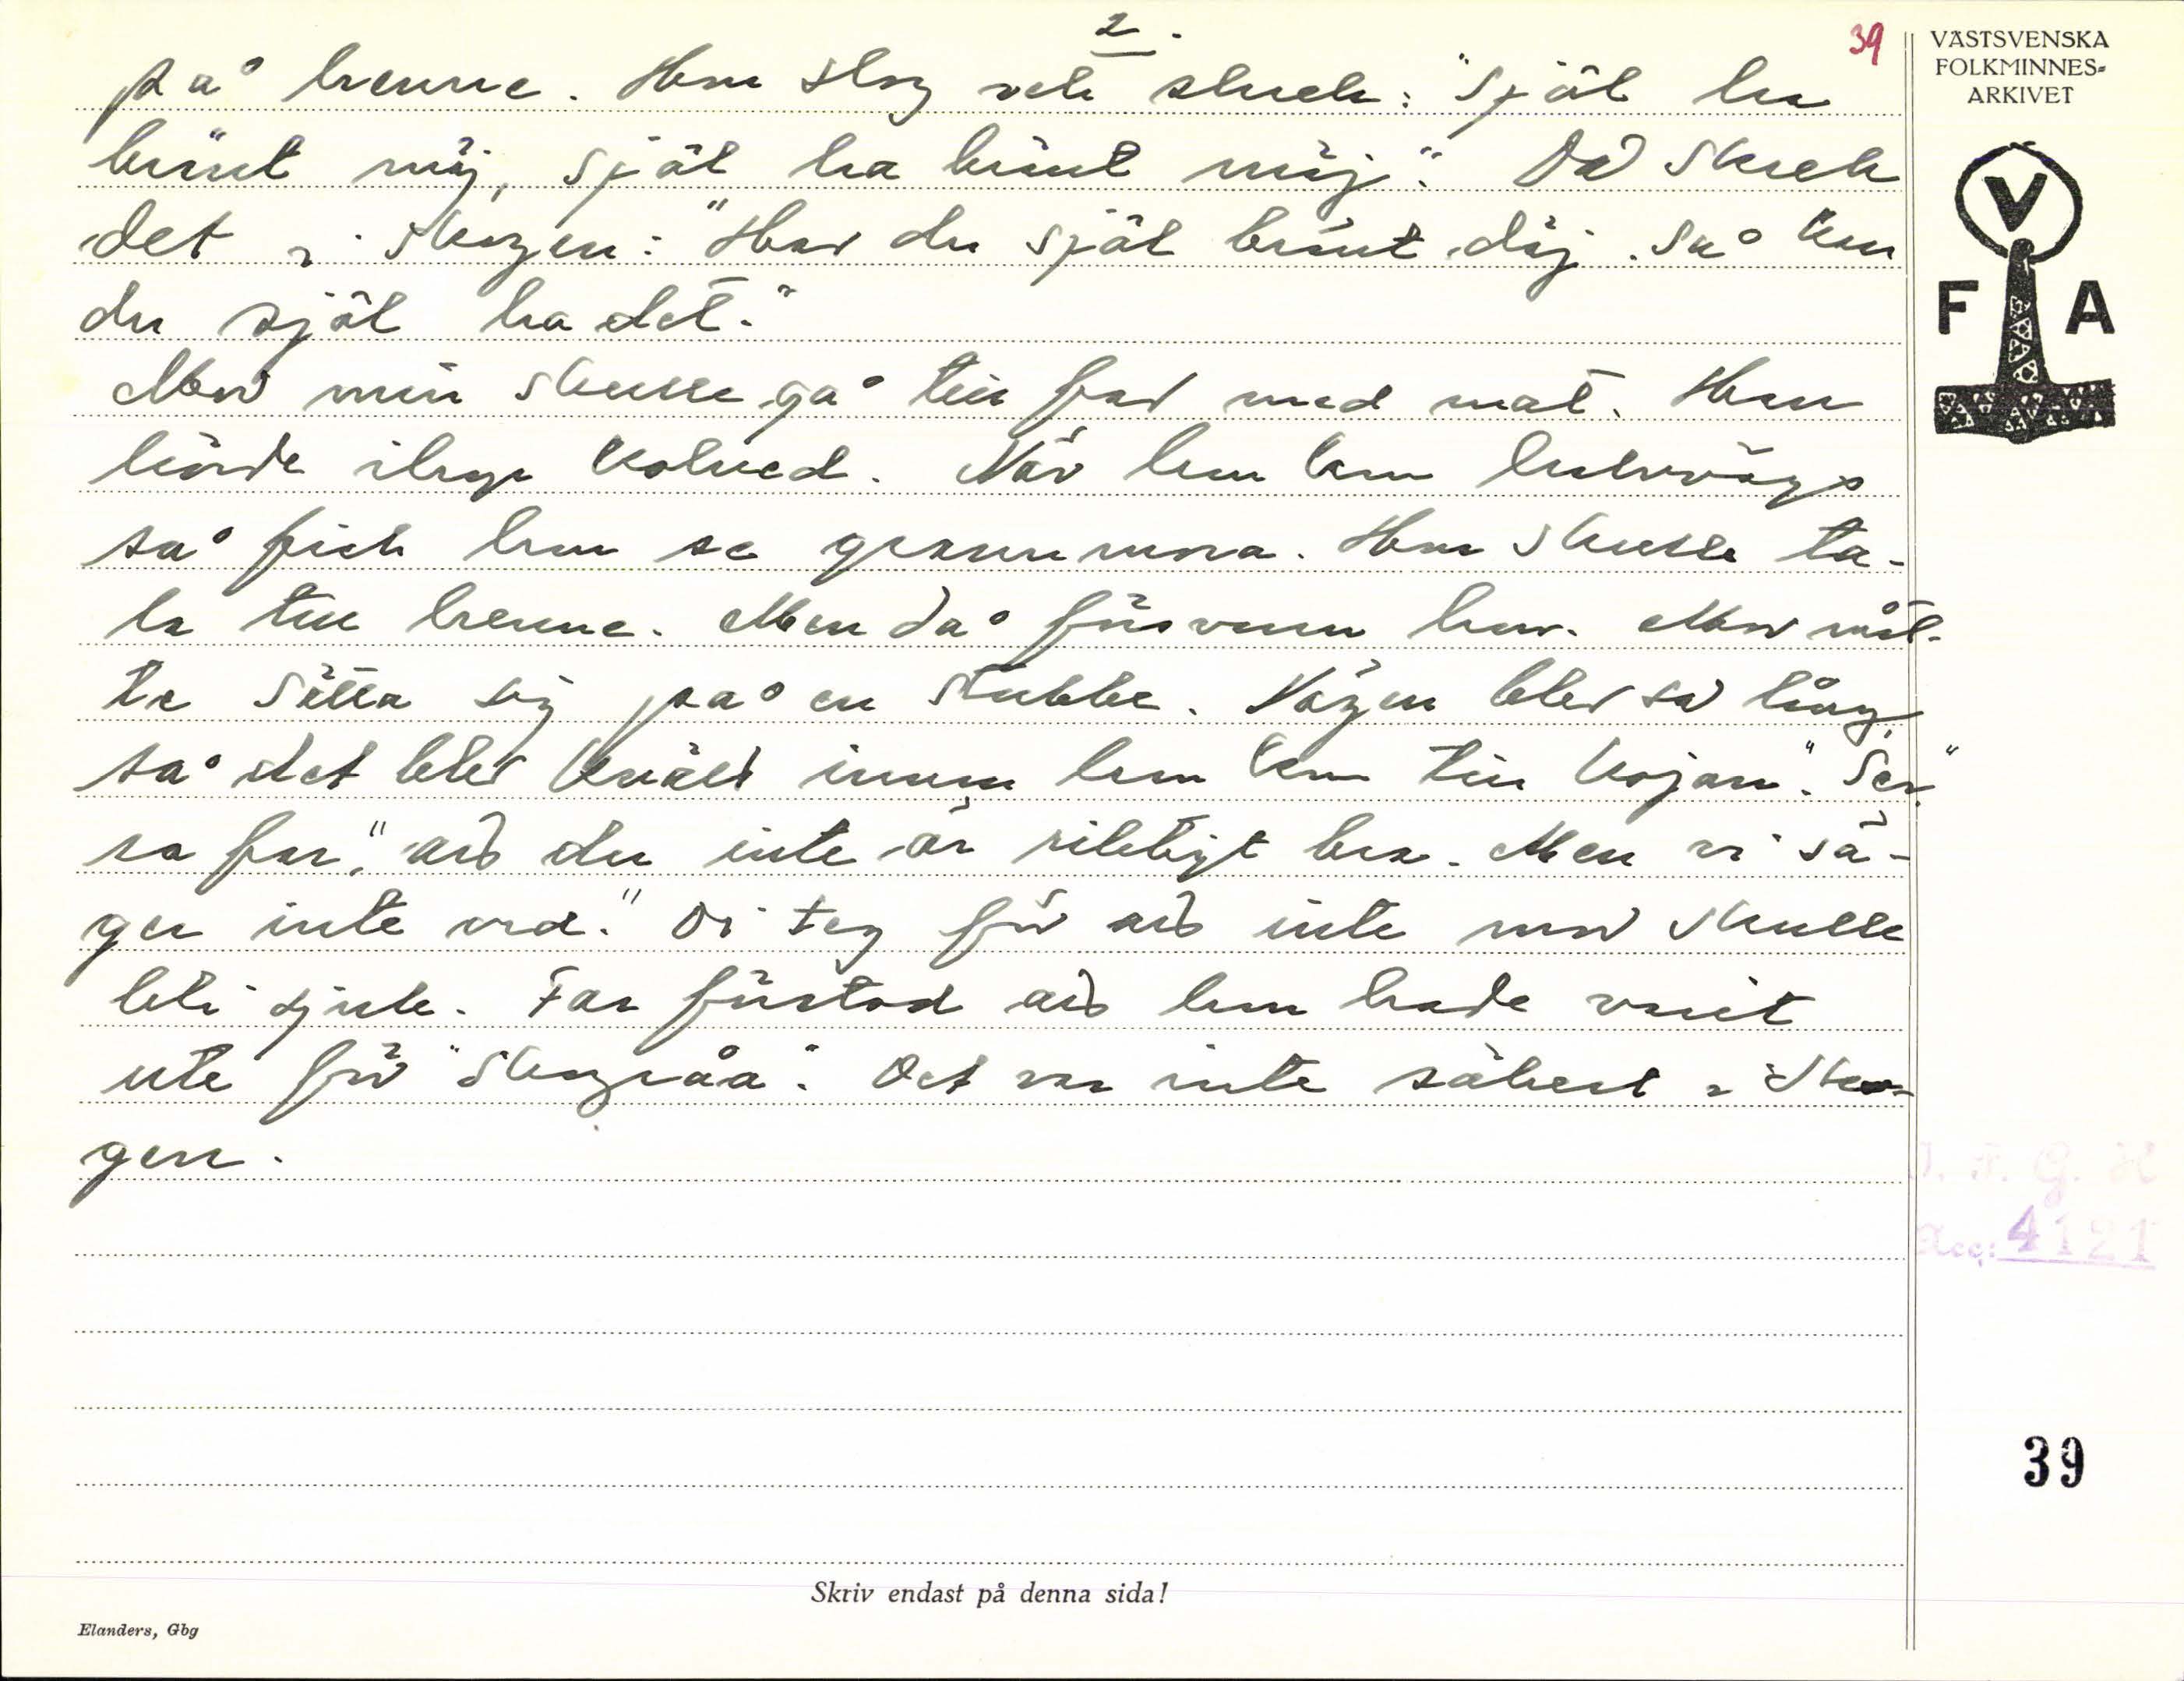 2.
39
på henne. Hon slog och skrek: "Själ ha
bränt mäj, själ ha bränt mäj". Då skrek
det i skogen: "Har du själ bränt däj. Så kan
du själ ha det."
Mor min skulle gå till far med mat. Han
körde ihop kolved. När hon kom halvvägs
så fick hon se grannmora. Hon skulle ta-
la till henne. Men då försvann hon. Mor mås-
te sätta sig på en stubbe. Vägen blev så lång,
så det blev kväll innan hon kom till kojan. "Ser"
sa far, "att du inte är riktigt bra. Men vi sä-
ger inte ord." Di teg för att inte mor skulle
bli sjuk. Far förstod att hon hade varit
ute för "Skogsråa". Det var inte säkert i sko-
gen.
VÄSTSVENSKA
FOLKMINNES-
ARKIVET
V
F A
V. F. G. H
Acc: 4121
39
Skriv endast på denna sida!
Elanders, Gbg